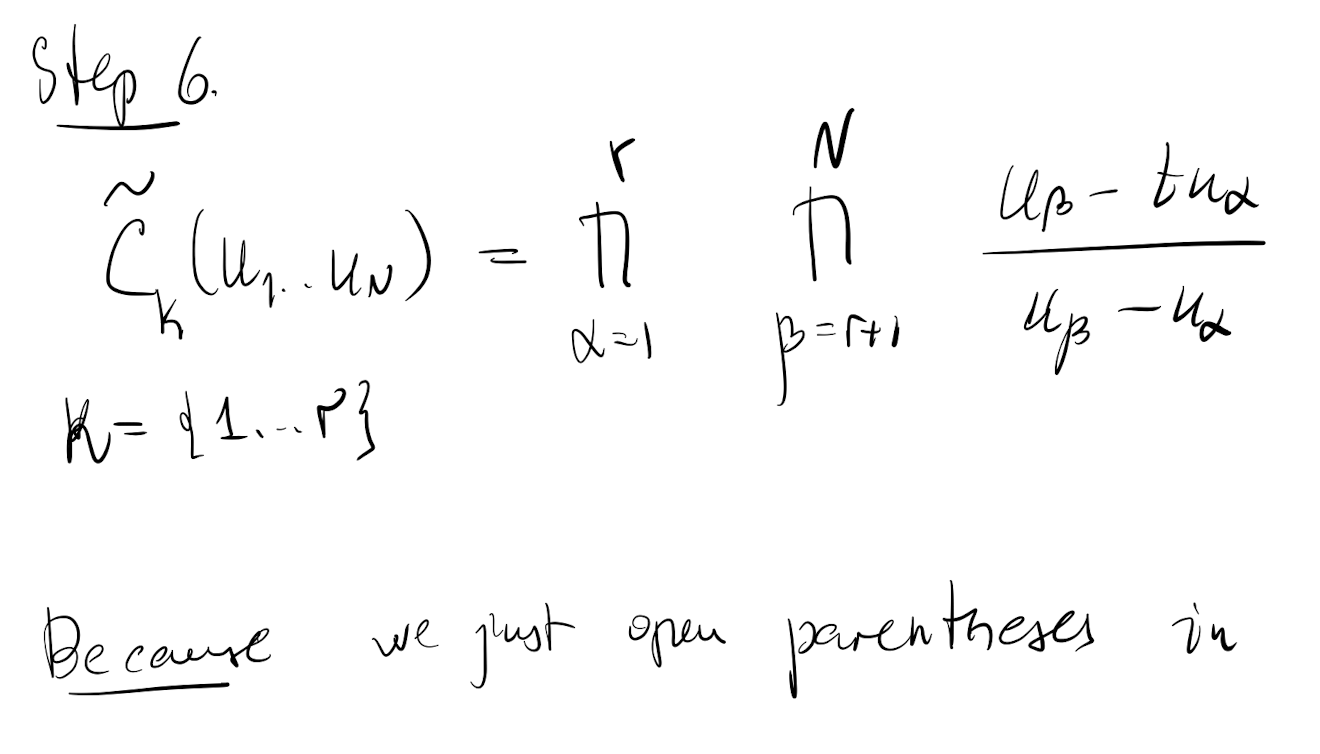 Step 6.
C̃_k (u_1..u_N) = ∏_{α=1}^{r} ∏_{β=r+1}^{N} (u_β - t u_α) / (u_β - u_α)
K = {1...r}
Because we just open parentheses in